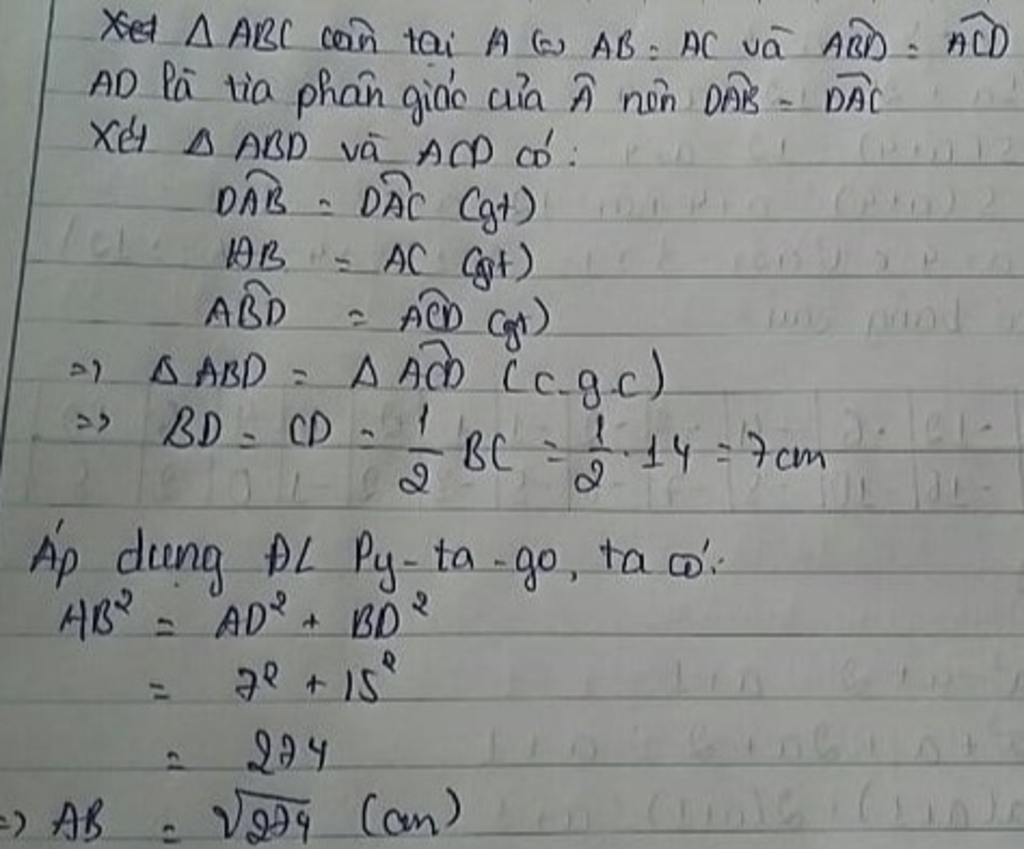 Xét Δ ABC cân tại A (=) AB = AC và ABD̂ = ACD̂
AD là tia phân giác của Â nên DÂB = DÂC
Xét Δ ABD và ACD có:
DÂB = DÂC (gt)
AB = AC (gt)
AB̂D = AĈD (gt)
=> Δ ABD = Δ AĈD (c.g.c)
=> BD = CD = 1/2 BC = 1/2 . 14 = 7cm
Áp dụng ĐL Py-ta-go, ta có:
AB² = AD² + BD²
= 7² + 15²
= 274
=> AB = √274 (cm)